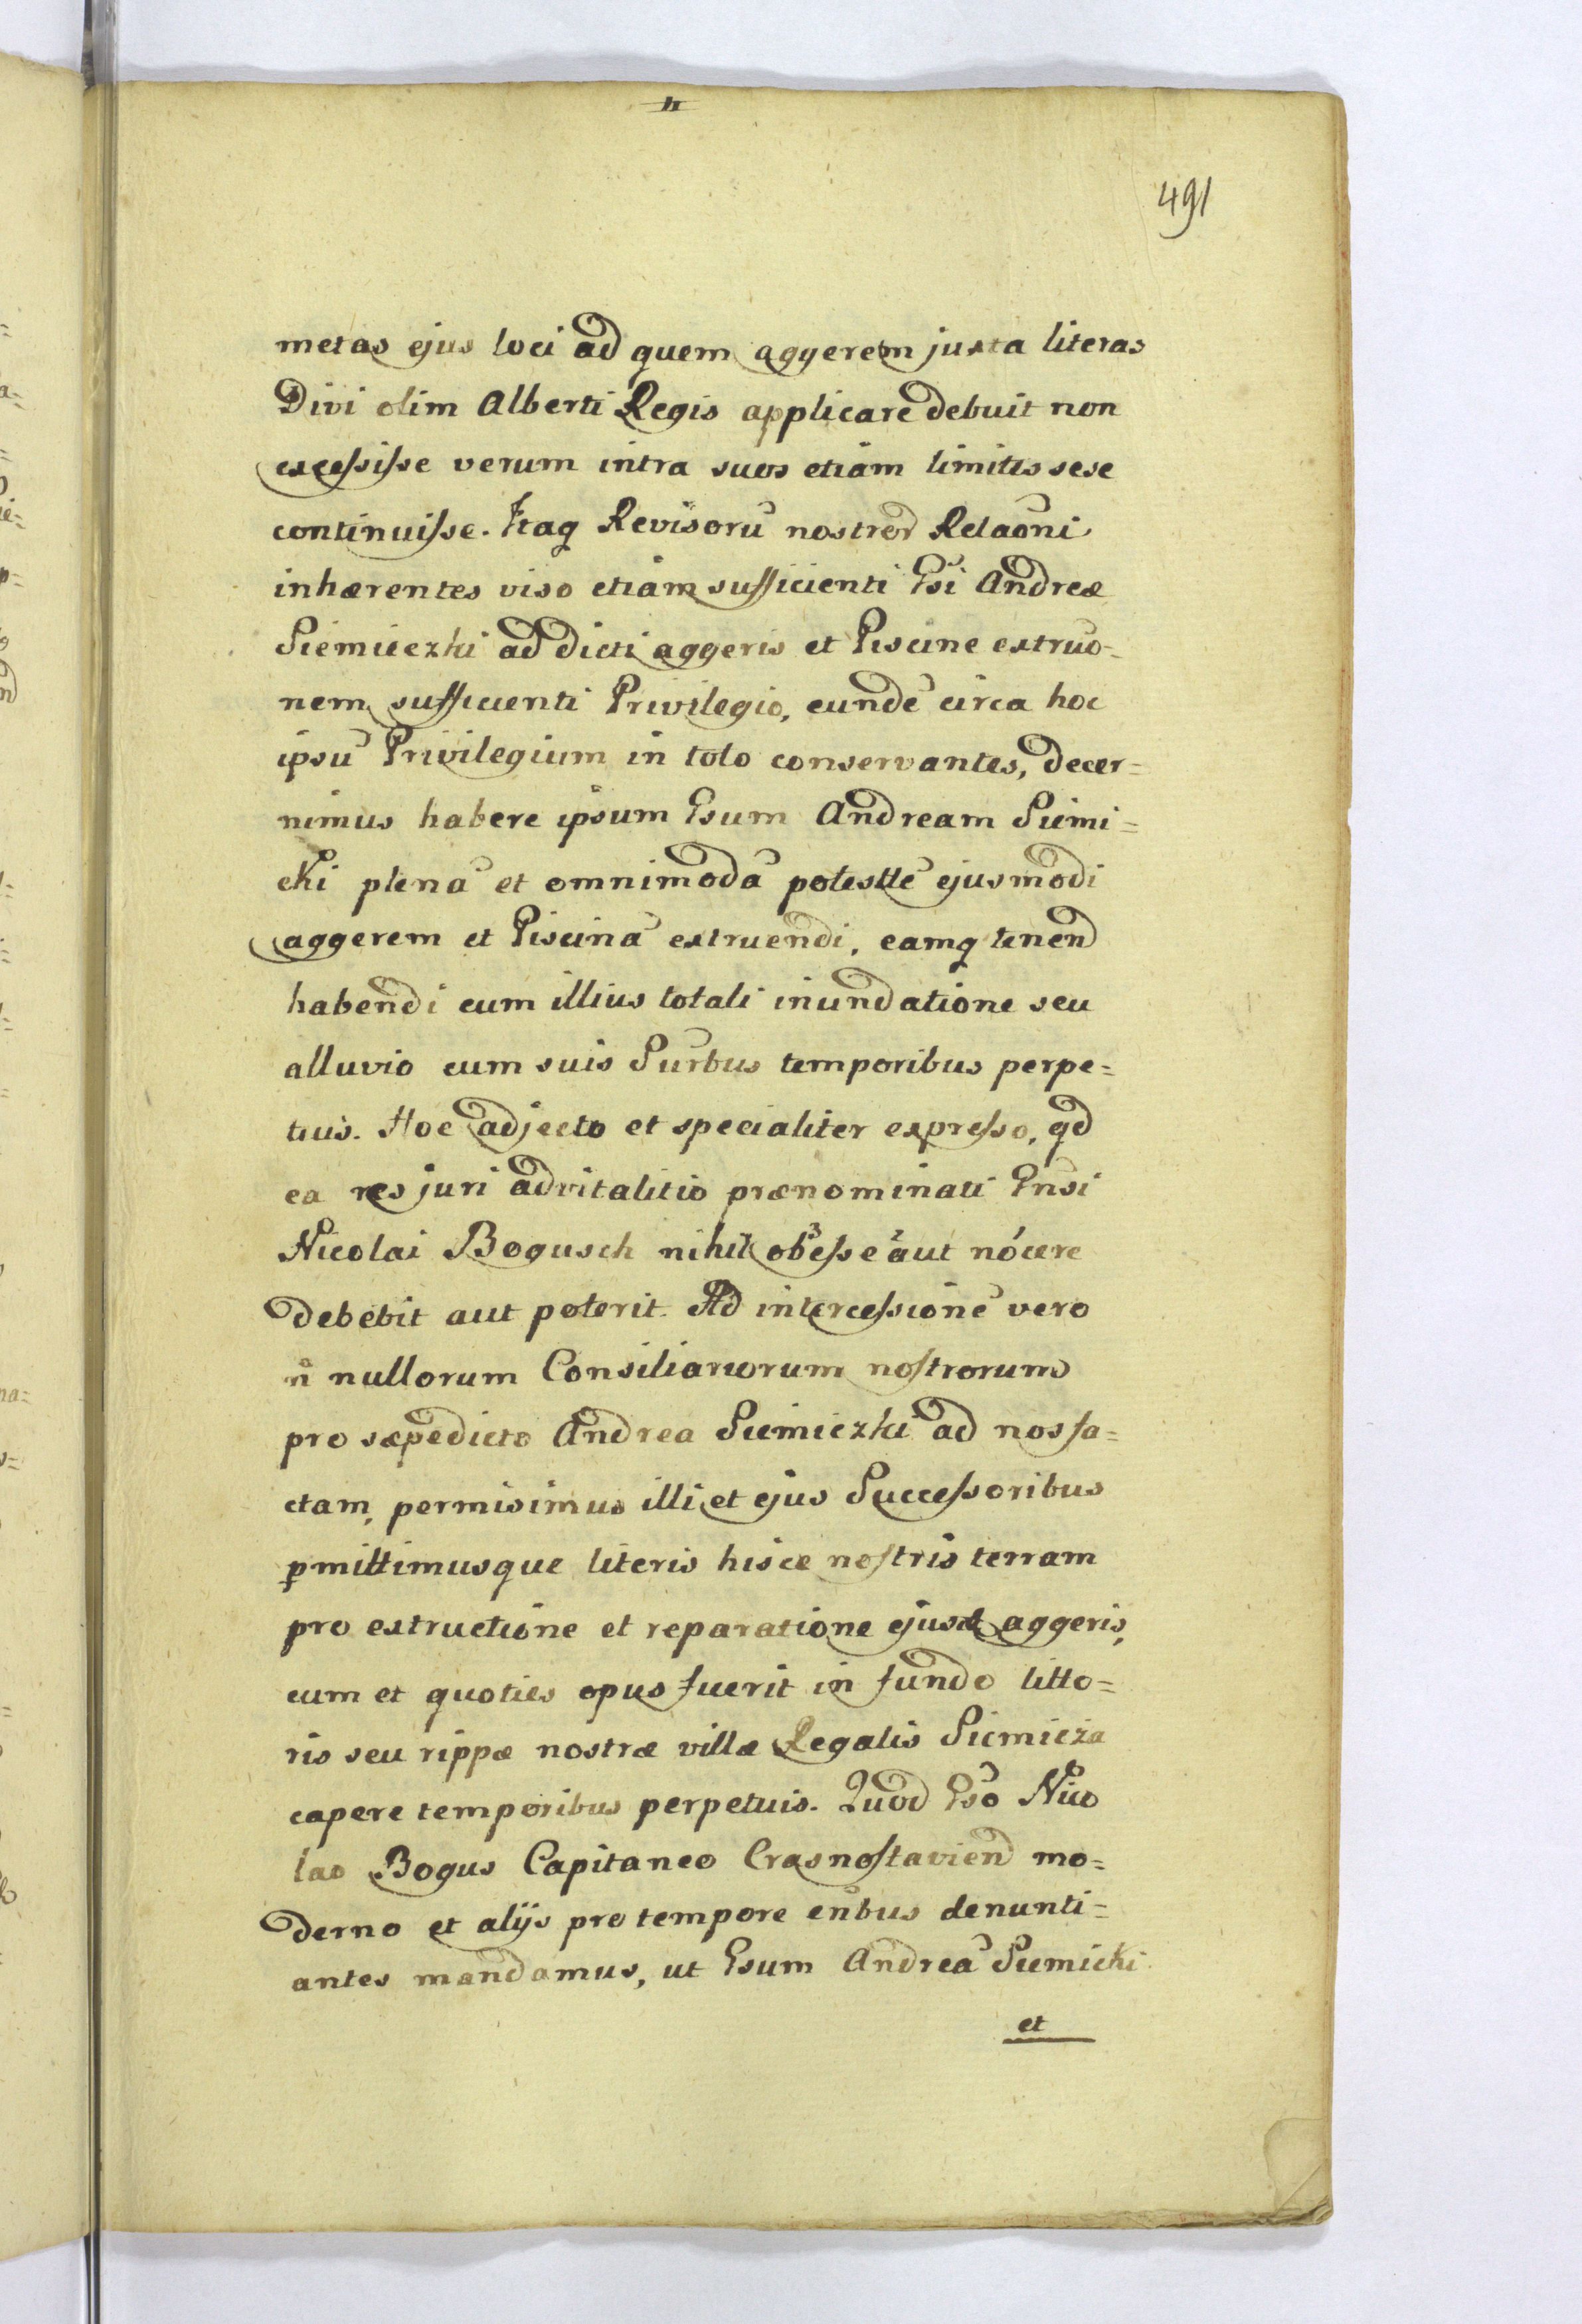 491
metas ejus loci ad quem aggerem juxta literas
Divi olim Alberti Regis applicare debuit non
excessisse verum intra suos etiam limites sese
continuisse. Itaq Revisorũ nostror Relaõni
inhærentes viso etiam sufficienti Gsi Andreæ
Siemiczki ad dicti aggeris et Piscine extruo-
nem sufficienti Privilegio, eundẽ circa hoc
ipsũ Privilegium in toto conservantes, decer=
nimus habere ipsum Gsum Andream Siemi=
cki plenã et omnimodã potesttẽ ejusmodi
aggerem et Piscinã extruendi, eamq tenend
habendi cum illius totali inundatione seu
alluvio cum suis Surbus temporibus perpe=
tuis. Hoc adjecto et specialiter expresso, qd
ea res juri advitalitio prænominati Gnsi
Nicolai Bogusch nihil obesse aut nocere
debebit aut poterit. Ad intercessionẽ vero
ñ nullorum Consiliariorum nostrorum
pro sæpedicto Andrea Siemiczki ad nos fa=
ctam, permisimus illi et ejus Successoribus
pmittimusque literis hisce nostris terram
pro extructione et reparatione ejusd aggeris,
cum et quoties opus fuerit in fundo litto=
ris seu rippæ nostræ villæ Regalis Siemieza
capere temporibus perpetuis. Quod Gso Nico
lao Bogus Capitaneo Crasnostaviend mo=
derno et alijs pro tempore eñbus denunti=
antes mandamus, ut Gsum Andreã Siemicki
et